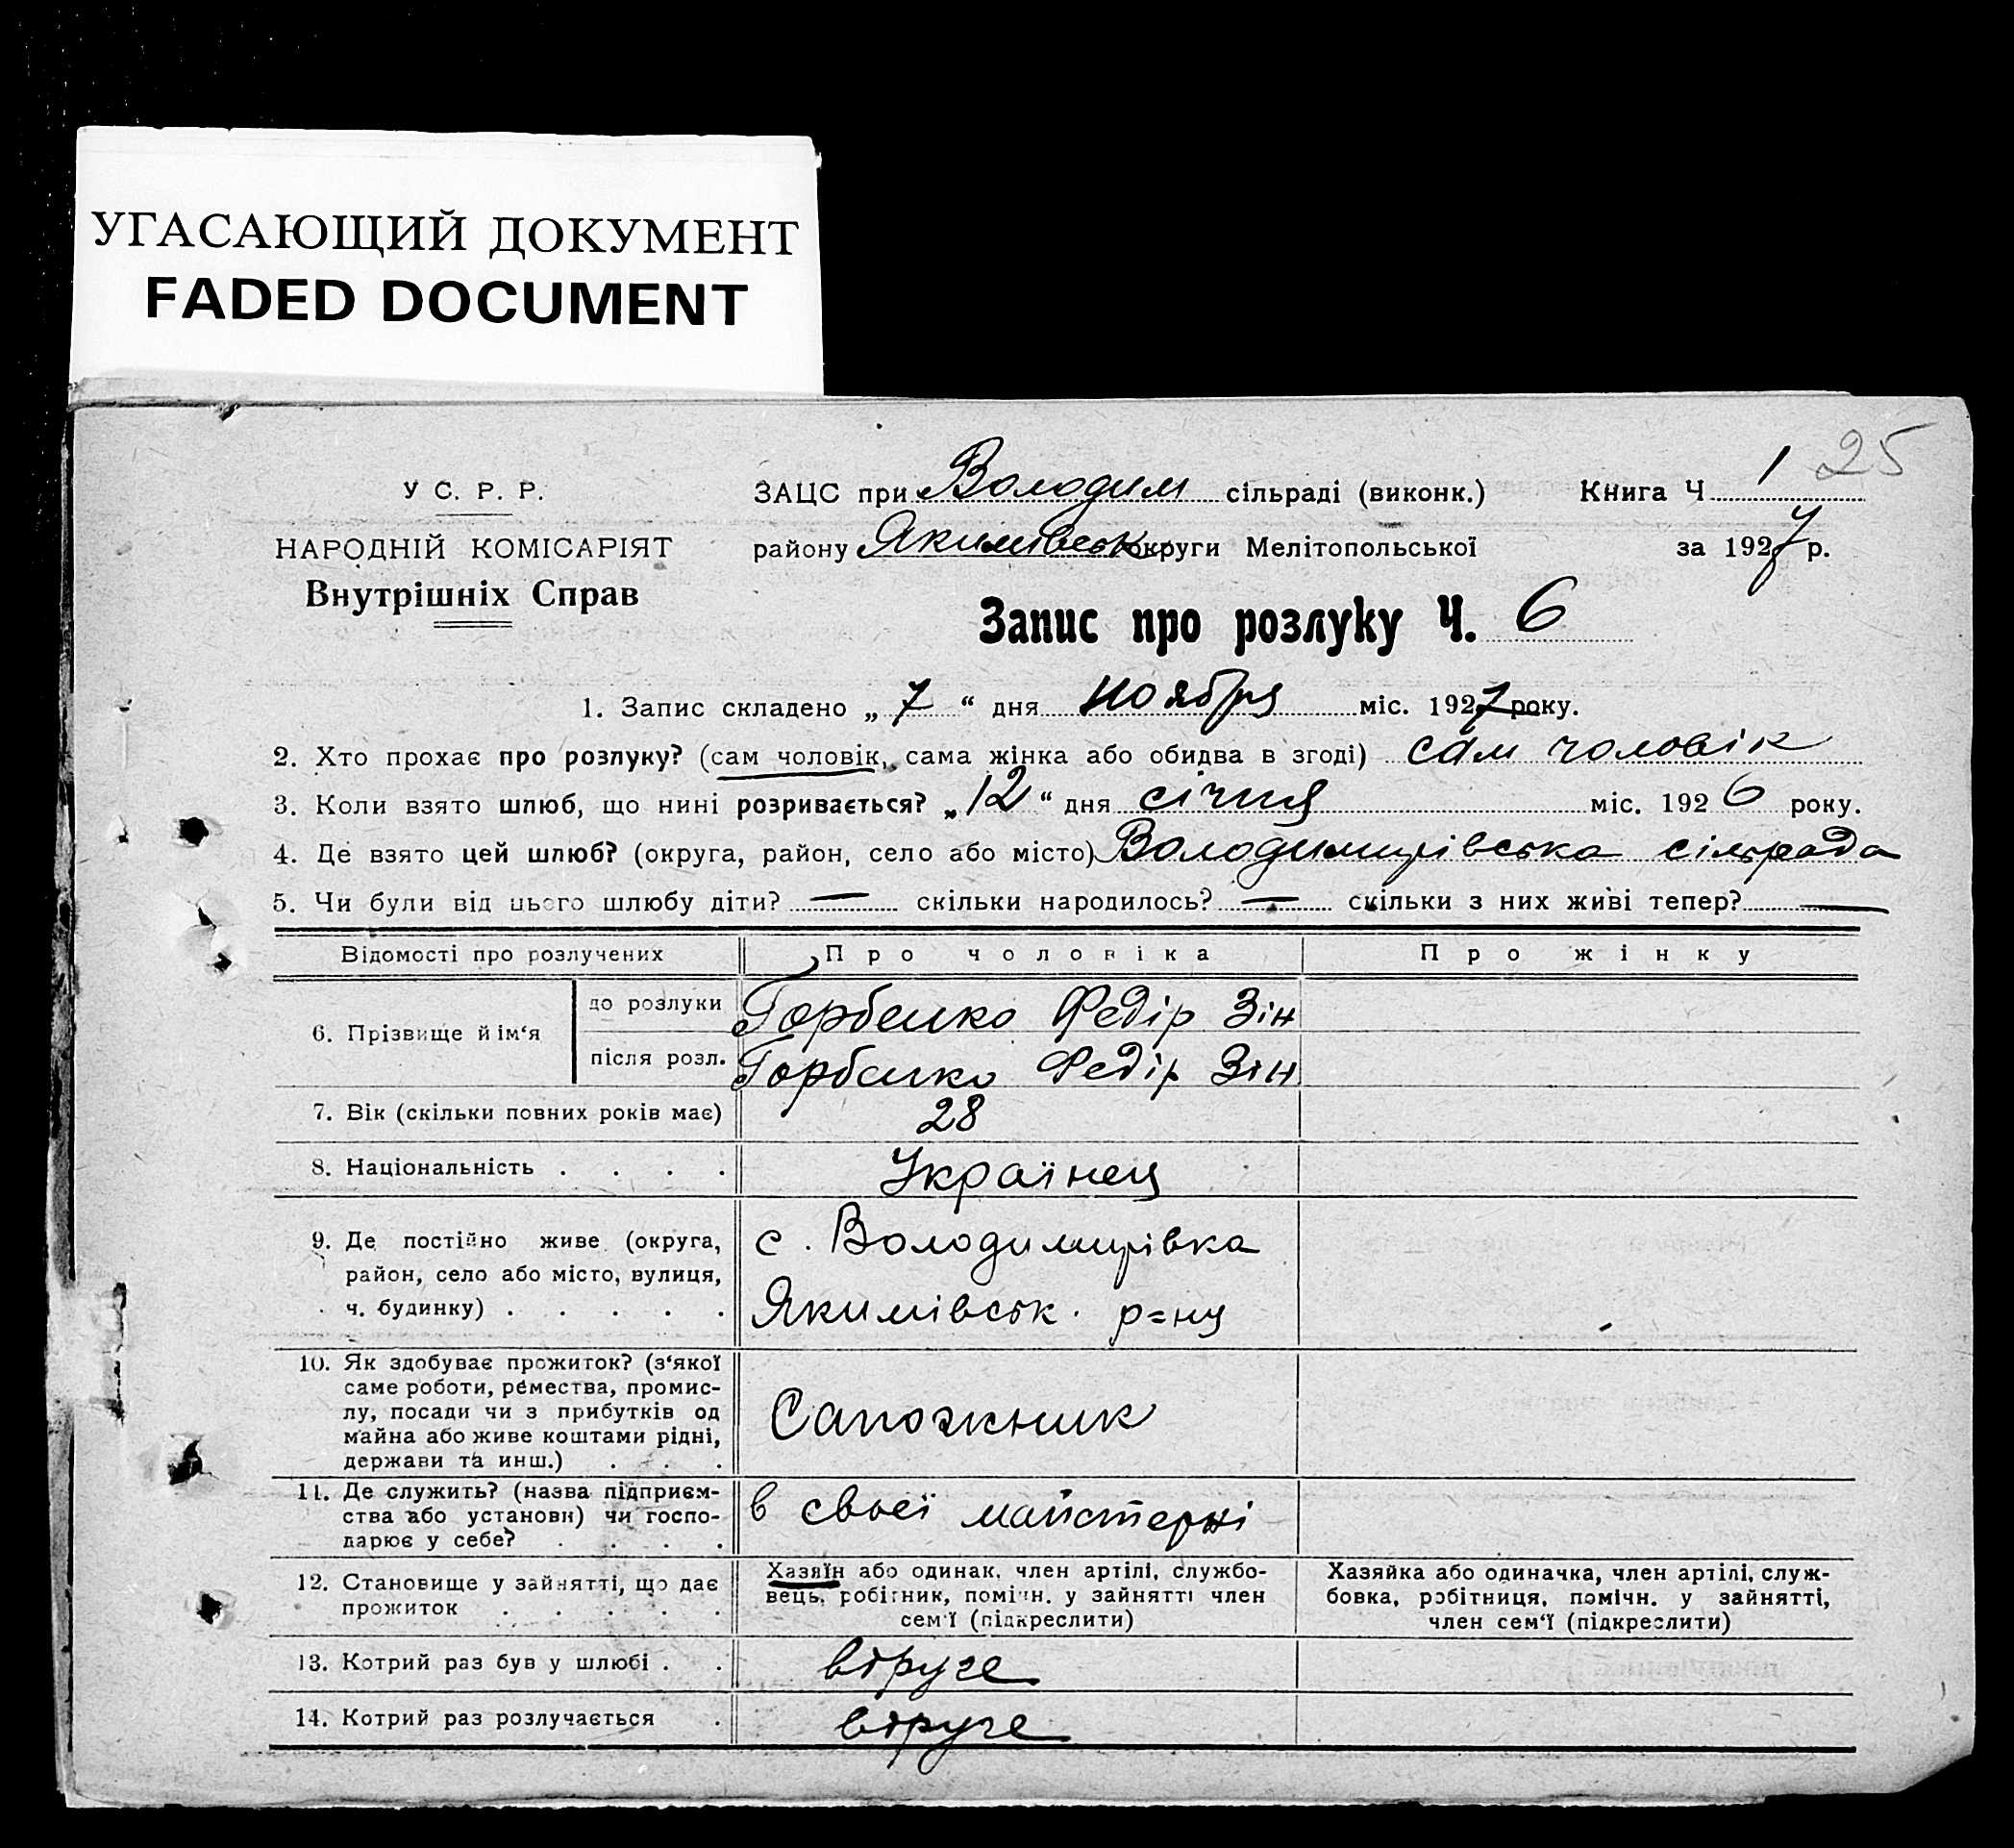 УГАСАЮЩИЙ ДОКУМЕНТ
FADED DOCUMENT
25
У С. Р. Р.
НАРОДНІЙ КОМІСАРІЯТ
Внутрішніх Справ
ЗАЦС при Володим сільраді (виконк.) Книга Ч 1
району Якимівськ округи Мелітопольської за 1927 р.
Запис про розлуку Ч. 6
1. Запис складено „ 7 “ дня ноября міс. 1927 року.
2. Хто прохає про розлуку? (сам чоловік, сама жінка або обидва в згоді) сам чоловік
3. Коли взято шлюб, що нині розривається? „ 12 “ дня січня міс. 1926 року.
4. Де взято цей шлюб? (округа, район, село або місто) Володимирівська сільрада
5. Чи були від цього шлюбу діти? — скільки народилось? — скільки з них живі тепер? —
Відомості про розлучених Про чоловіка Про жінку
6. Прізвище й ім‘я до розлуки Горбенко Федір Зін
після розл. Горбенко Федір Зін
7. Вік (скільки повних років має) 28
8. Національність . . . . Українец
9. Де постійно живе (округа, район, село або місто, вулиця, ч. будинку) . . . . .
с. Володимирівка
Якимівськ. р=ну
10. Як здобуває прожиток? (з‘якої
саме роботи, ремества, промис-
лу, посади чи з прибутків од
майна або живе коштами рідні,
держави та инш.) . . .
Сапожник
11. Де служить? (назва підприєм-
ства або установи) чи госпо-
дарює у себе? . . . .
в своєї майстерні
12. Становище у зайнятті, що дає
прожиток . . . . .
Хазяїн або одинак, член артілі, службо-
вець, робітник, помічн. у зайнятті член
сем‘ї (підкреслити)
Хазяйка або одиначка, член артілі, служ-
бовка, робітниця, помічн. у зайнятті,
член сем‘ї (підкреслити)
13. Котрий раз був у шлюбі . . втруге
14. Котрий раз розлучається . втруге